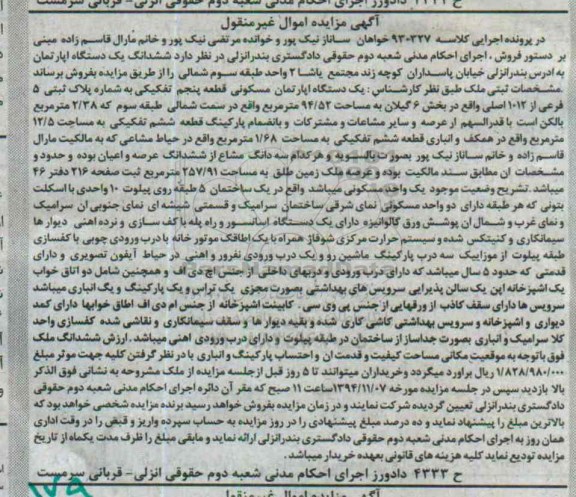 ح ۴۳۳۳ دادورز اجرای احکام مدنی شعبه دوم حقوقی انزلی- قربانی سرمست
آگهی مزایده اموال غیرمنقول
در پرونده اجرایی کلاسه ۹۳۰۳۲۷ خواهان ساناز نیک پور و خوانده مرتضی نیک پور و خانم مارال قاسم زاده مبنی
بر دستور فروش ، اجرای احکام مدنی شعبه دوم حقوقی دادگستری بندرانزلی در نظر دارد ششدانگ یک دستگاه اپارتمان
به ادرس بندرانزلی خیابان پاسداران کوچه زند مجتمع پاشا ۲ واحد طبقه سوم شمالی را از طریق مزایده بفروش برساند
مشخصات ثبتی ملک طبق نظر کارشناس : یک دستگاه اپارتمان مسکونی قطعه پنجم تفکیکی به شماره پلاک ثبتی ۵
فرعی از ۱۰۱۲ اصلی واقع در بخش ۶ گیلان به مساحت ۹۴/۵۲ مترمربع واقع در سمت شمالی طبقه سوم که ۲/۳۸ مترمربع
بالکن است با قدرالسهم از عرصه و سایر مشاعات و مشترکات و بانضمام پارکینگ قطعه ششم تفکیکی به مساحت ۱۲/۵
مترمربع واقع در همکف و انباری قطعه ششم تفکیکی به مساحت ۱/۶۸ مترمربع واقع در حیاط مشاعی که به مالکیت مارال
قاسم زاده و خانم ساناز نیک پور بصورت بالسویه و هرکدام سه دانگ مشاع از ششدانگ عرصه و اعیان بوده و حدود و
مشخصات ان مطابق سند مالکیت بوده و عرصه ملک زمین طلق به مساحت ۲۵۷/۹۱ مترمربع ثبت صفحه ۲۱۶ دفتر ۴۶
میباشد .تشریح وضعیت موجود یک واحد مسکونی میباشد واقع در یک ساختمان ۵ طبقه روی پیلوت ۱۰ واحدی با اسکلت
بتونی که هر طبقه دارای دو واحد مسکونی نمای شرقی ساختمان سرامیک و قسمتی شیشه ای نمای جنوبی ان سرامیک
و نمای غرب و شمال ان پوشش ورق گالوانیزه دارای یک دستگاه اسانسور و راه پله با کف سازی و نرده اهنی دیوار ها
سیمانکاری و کنیتکس شده و سیستم حرارت مرکزی شوفاژ همراه با یک اطاقک موتور خانه با درب ورودی چوبی با کفسازی
طبقه پیلوت از موزاییک سه درب پارکینگ ماشین رو و یک درب ورودی نفررو و اهنی در حیاط آیفون تصویری و دارای
قدمتی که حدود ۵ سال میباشد که دارای درب ورودی و دربهای داخلی از جنس اچ دی اف و همچنین شامل دو اتاق خواب
یک اشپزخانه اپن یک سالن پذیرایی سرویس های بهداشتی بصورت مجزی یک تراس و یک پارکینگ و یگ انباری میباشد
سرویس ها دارای سقف کاذب از ورقهایی از جنس پی وی سی . کابینت اشپزخانه از جنس ام دی اف اطاق خوابها دارای کمد
دیواری و اشپزخانه و سرویس بهداشتی کاشی کاری شده و بقیه دیوار ها و سقف سیمانکاری و نقاشی شده کفسازی واحد
کلا سرامیک و انباری بصورت جداساز از ساختمان در طبقه پیلوت و دارای درب ورودی اهنی میباشد .ارزش ششدانگ ملک
فوق باتوجه به موقعیت مکانی مساحت کیفیت و قدمت ان و احتساب پارکینگ و انباری با در نظر گرفتن کلیه جهت موثر مبلغ
۱/۸۲۸/۹۸۰/۰۰۰ ریال براورد میگردد وخریداران میتوانند تا ۵ روز قبل ازجلسه مزایده از ملک مشروحه به نشانی فوق الذکر
بالا بازدید سپس در جلسه مزایده مورخه ۱۳۹۴/۱۱/۰۷ ساعت ۱۱ صبح که مقر آن دائره اجرای احکام مدنی شعبه دوم حقوقی
دادگستری بندرانزلی تعیین گردیده شرکت نمایند و در زمان مزایده بفروش خواهد رسید برنده مزایده شخصی خواهد بود که
بالاترین مبلغ را پیشنهاد نماید و ده درصد مبلغ پیشنهادی را در روز مزایده به حساب سپرده واریز و قبض را در وقت اداری
همان روز به اجرای احکام مدنی شعبه دوم حقوقی دادگستری بندرانزلی ارائه نماید و مابقی مبلغ را ظرف مدت یکماه از تاریخ
مزایده تودیع نماید کلیه هزینه های قانونی بعهده خریدار میباشد.
ح ۴۳۳۳ دادورز اجرای احکام مدنی شعبه دوم حقوقی انزلی- قربانی سرمست
آگهی مزایده اموال غیرمنقول